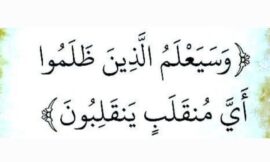 ﴿وَسَيَعْلَمُ الَّذِينَ ظَلَمُوا
أَيَّ مُنقَلَبٍ يَنقَلِبُونَ﴾